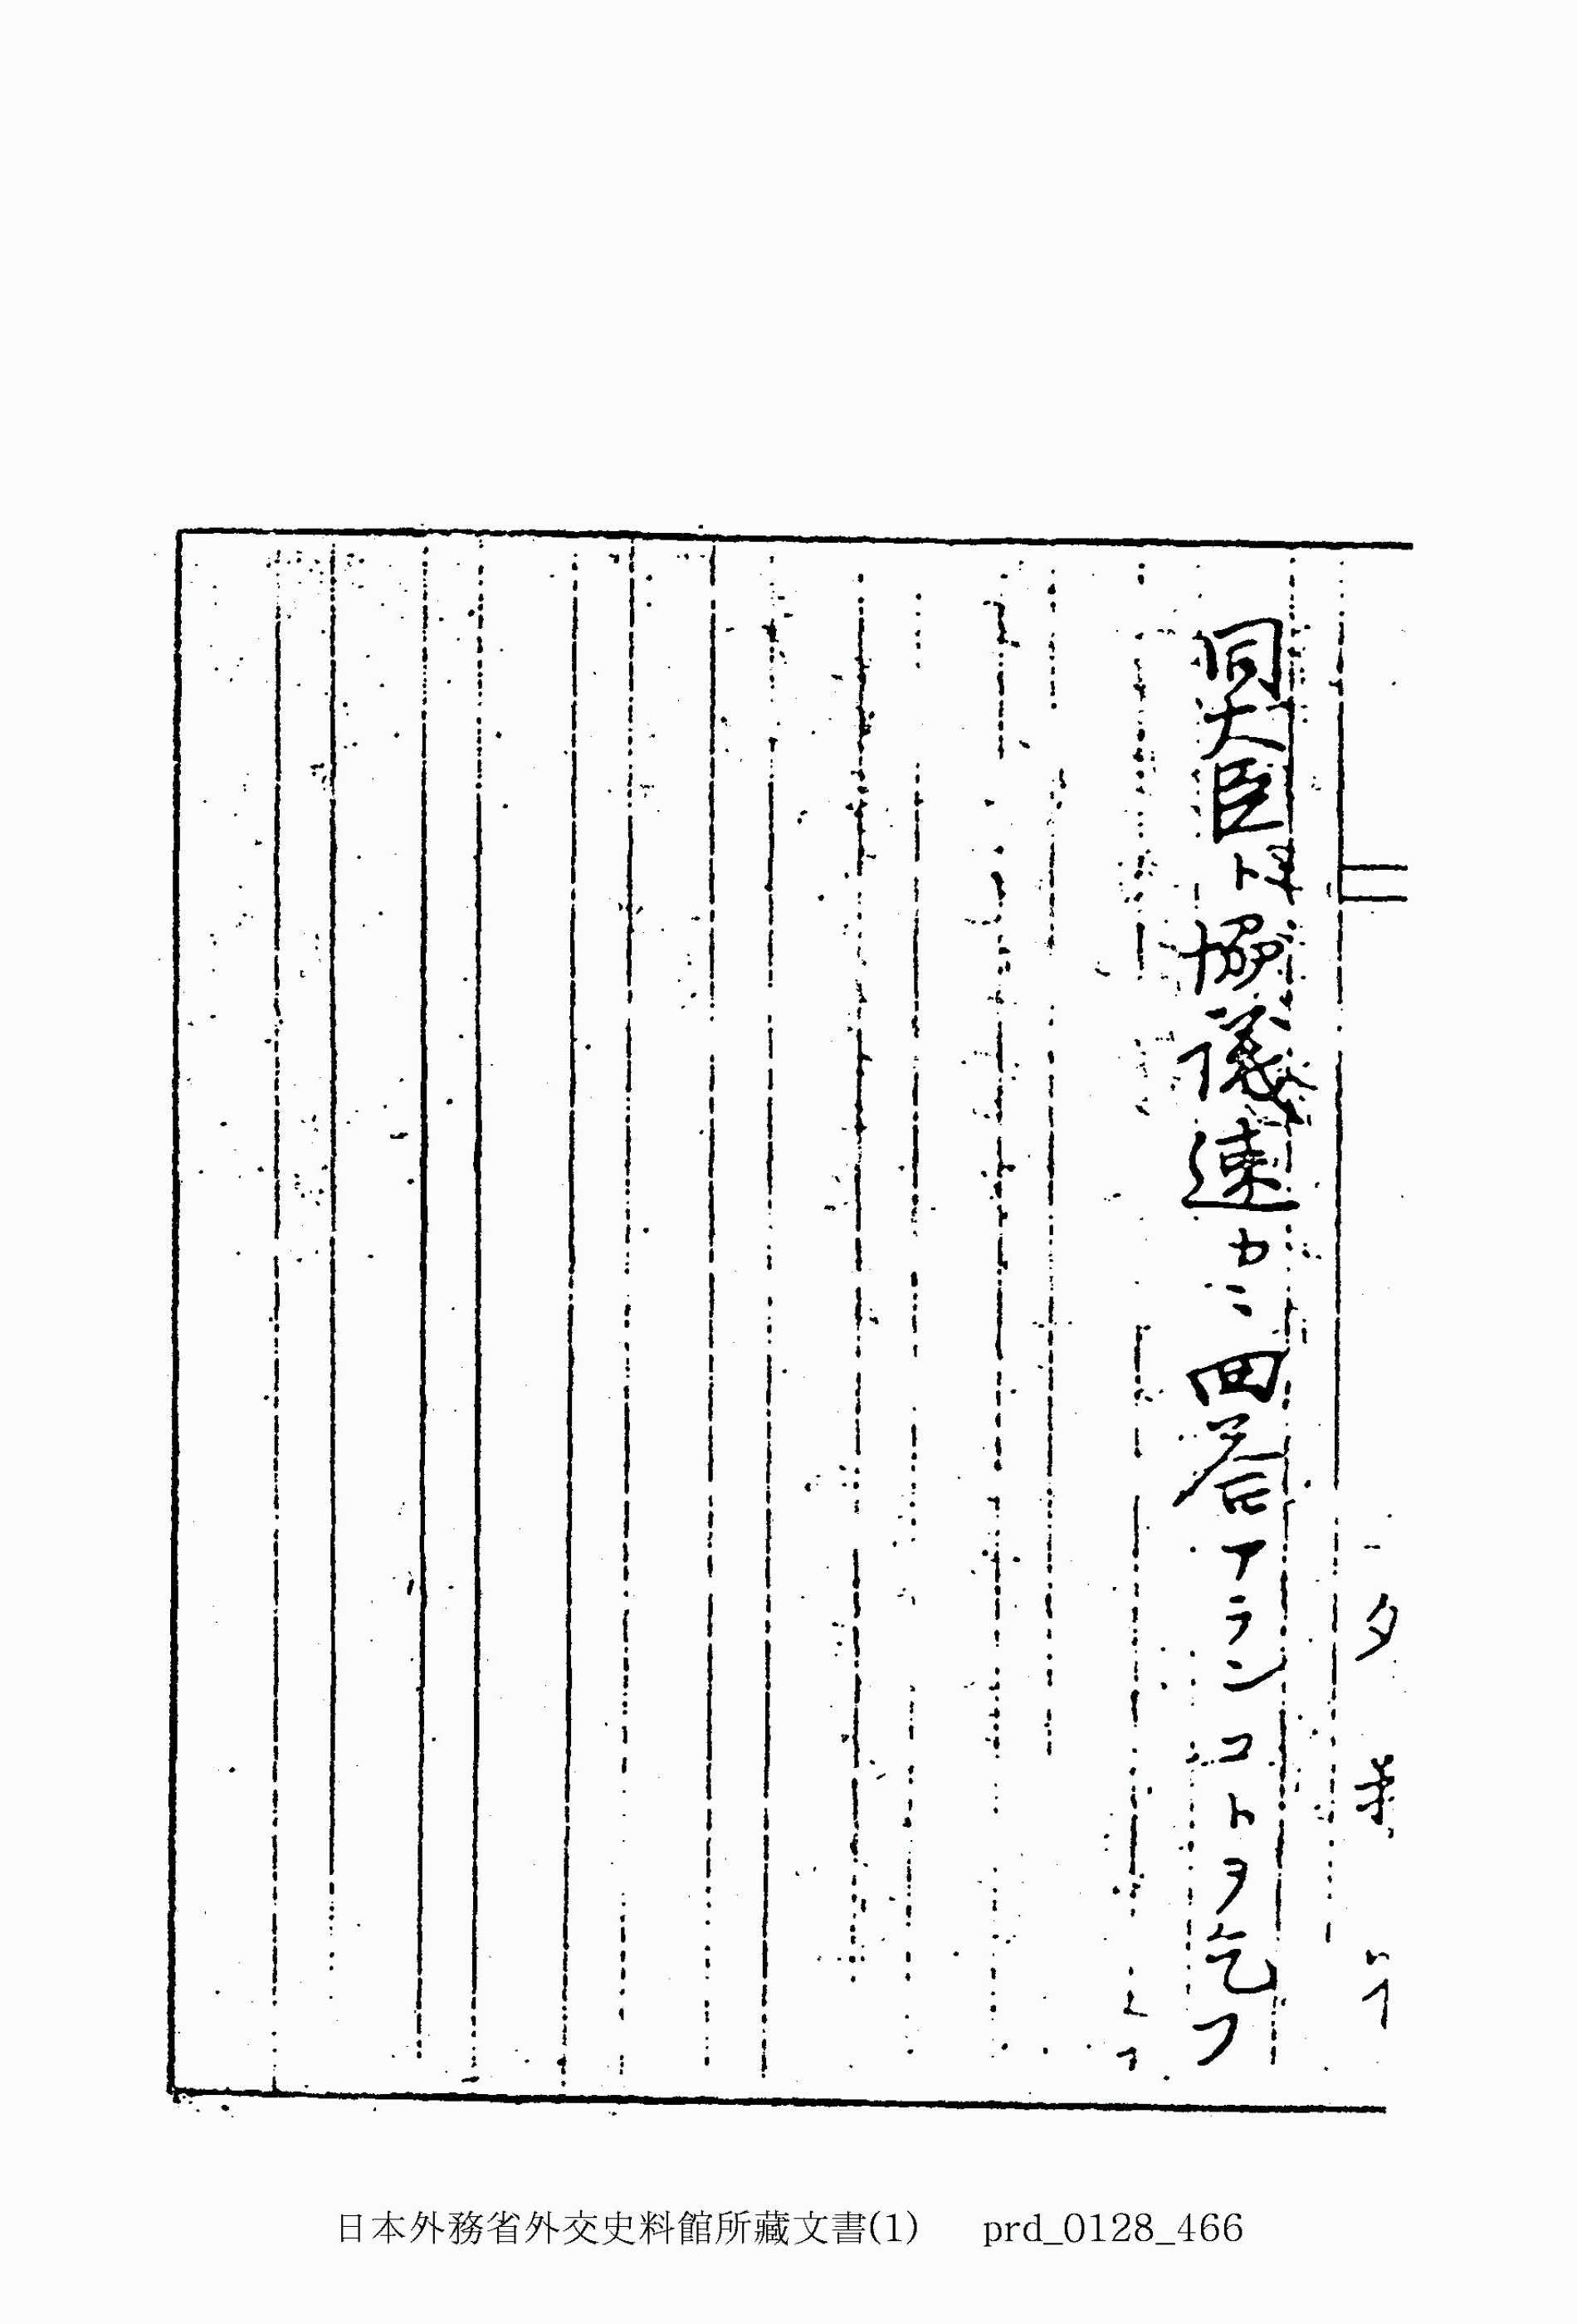 同大臣ト協議速カニ回答アランコトヲ乞フ
日本外務省外交史料館所藏文書(1) prd_0128_466